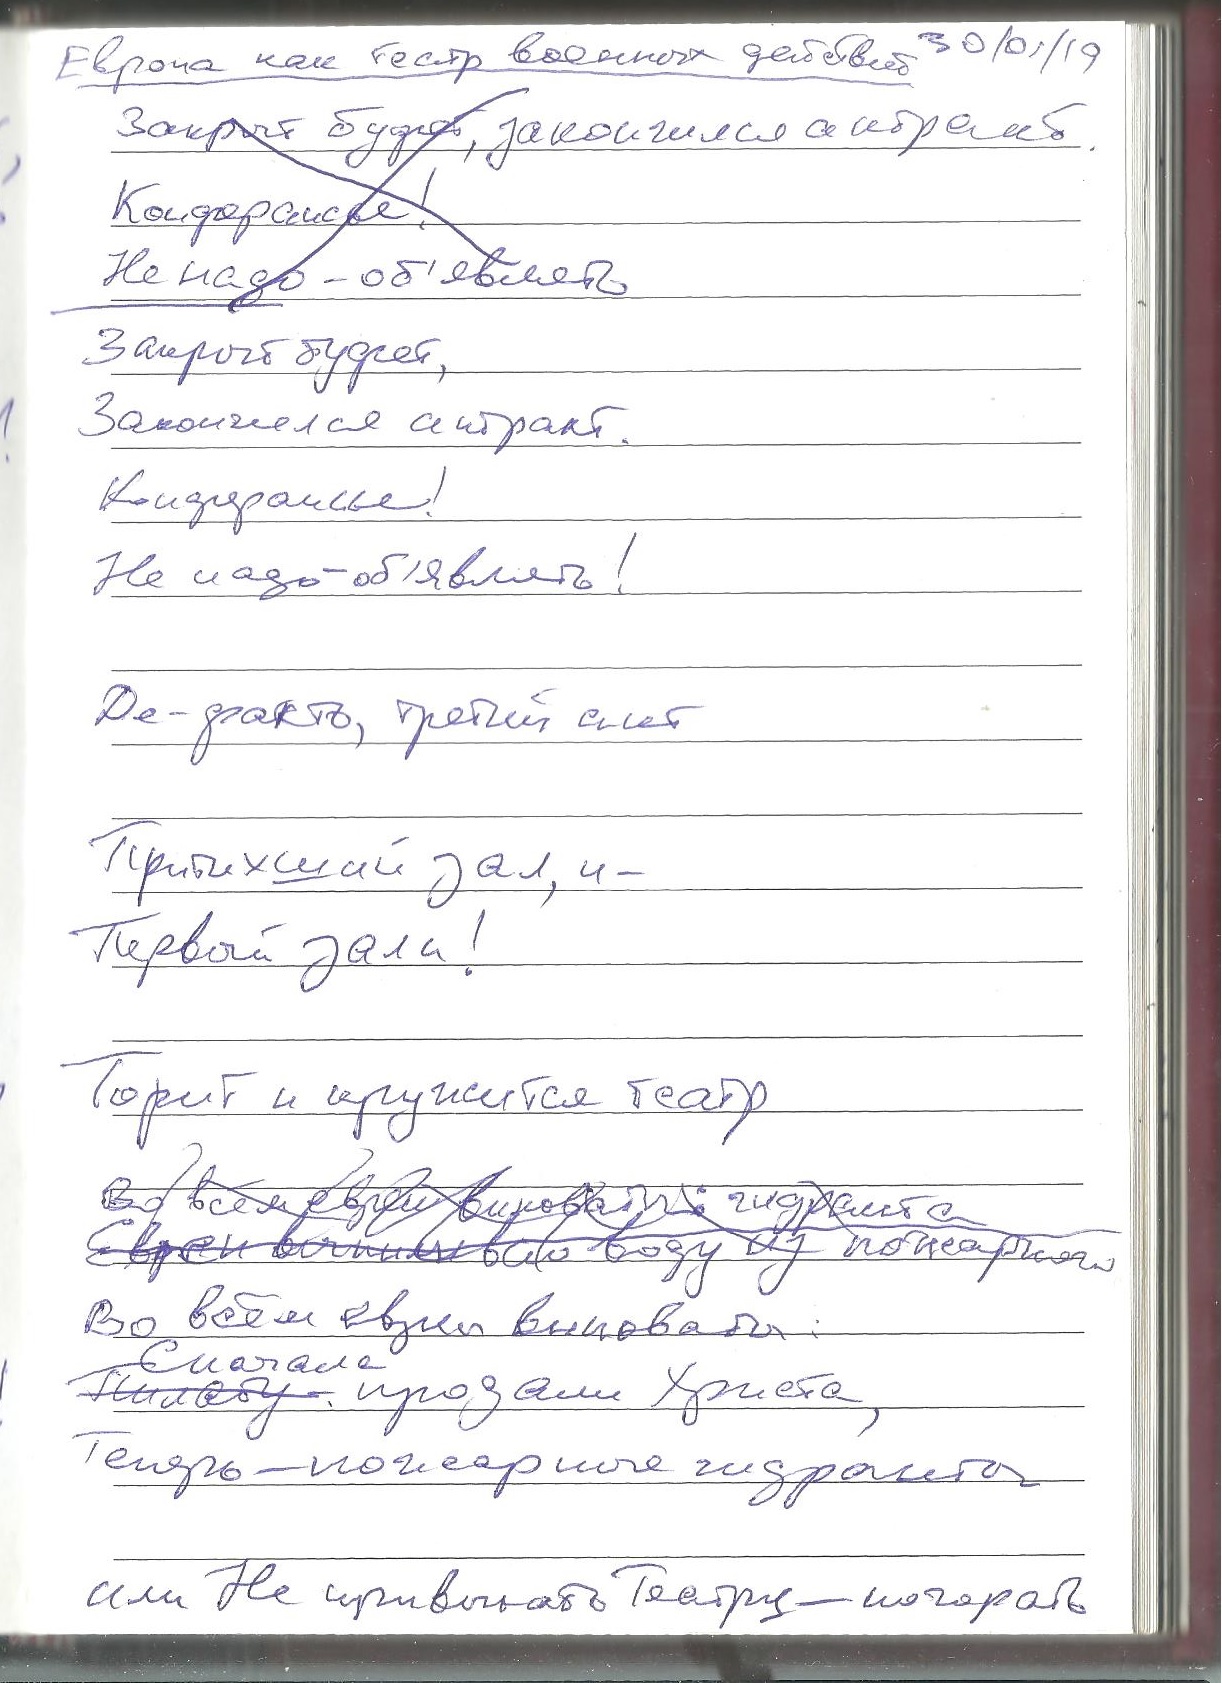 Европа как театр военных действий 30/01/19
Закрыт будет, закончился антракт.
Конферансье!
Не надо – об'являть
Закрыт будет,
Закончился антракт.
Конферансье!
Не надо – об'являть!
Де-факто, третий акт
Притихший зал, и –
Первый залп!
Горит и кружится театр
Во всём евреи виноваты: гидранта
Евреи воду из пожарного
Во всём евреи виноваты:
Сначала
Пилату продали Христа,
Теперь – пожарные гидранты
или Не привыкать Театру – погорать